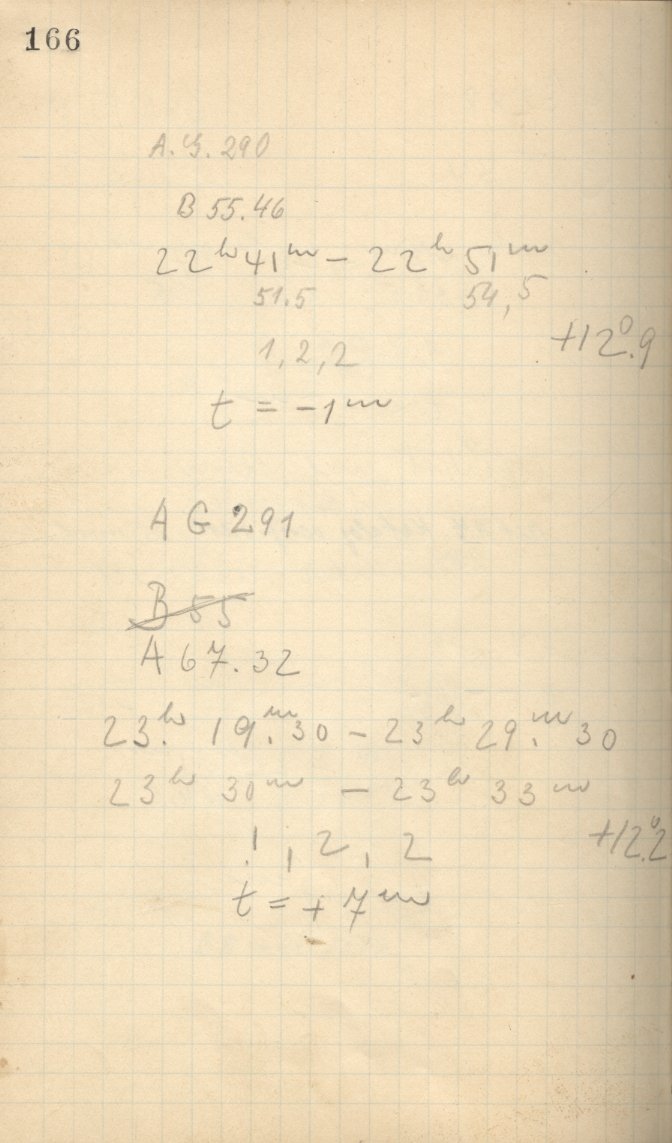 166
A.G. 290
B 55.46
22ʰ 41ᵐ – 22ʰ 51ᵐ
51.5 54,5
+12°.9
1, 2, 2
t = -1ᵐ
A G 291
B 55
A 67.32
23.ʰ 19.ᵐ30 – 23ʰ 29.ᵐ 30
23ʰ 30ᵐ – 23ʰ 33ᵐ
1, 2, 2 +12°.2
t = + 7ᵐ